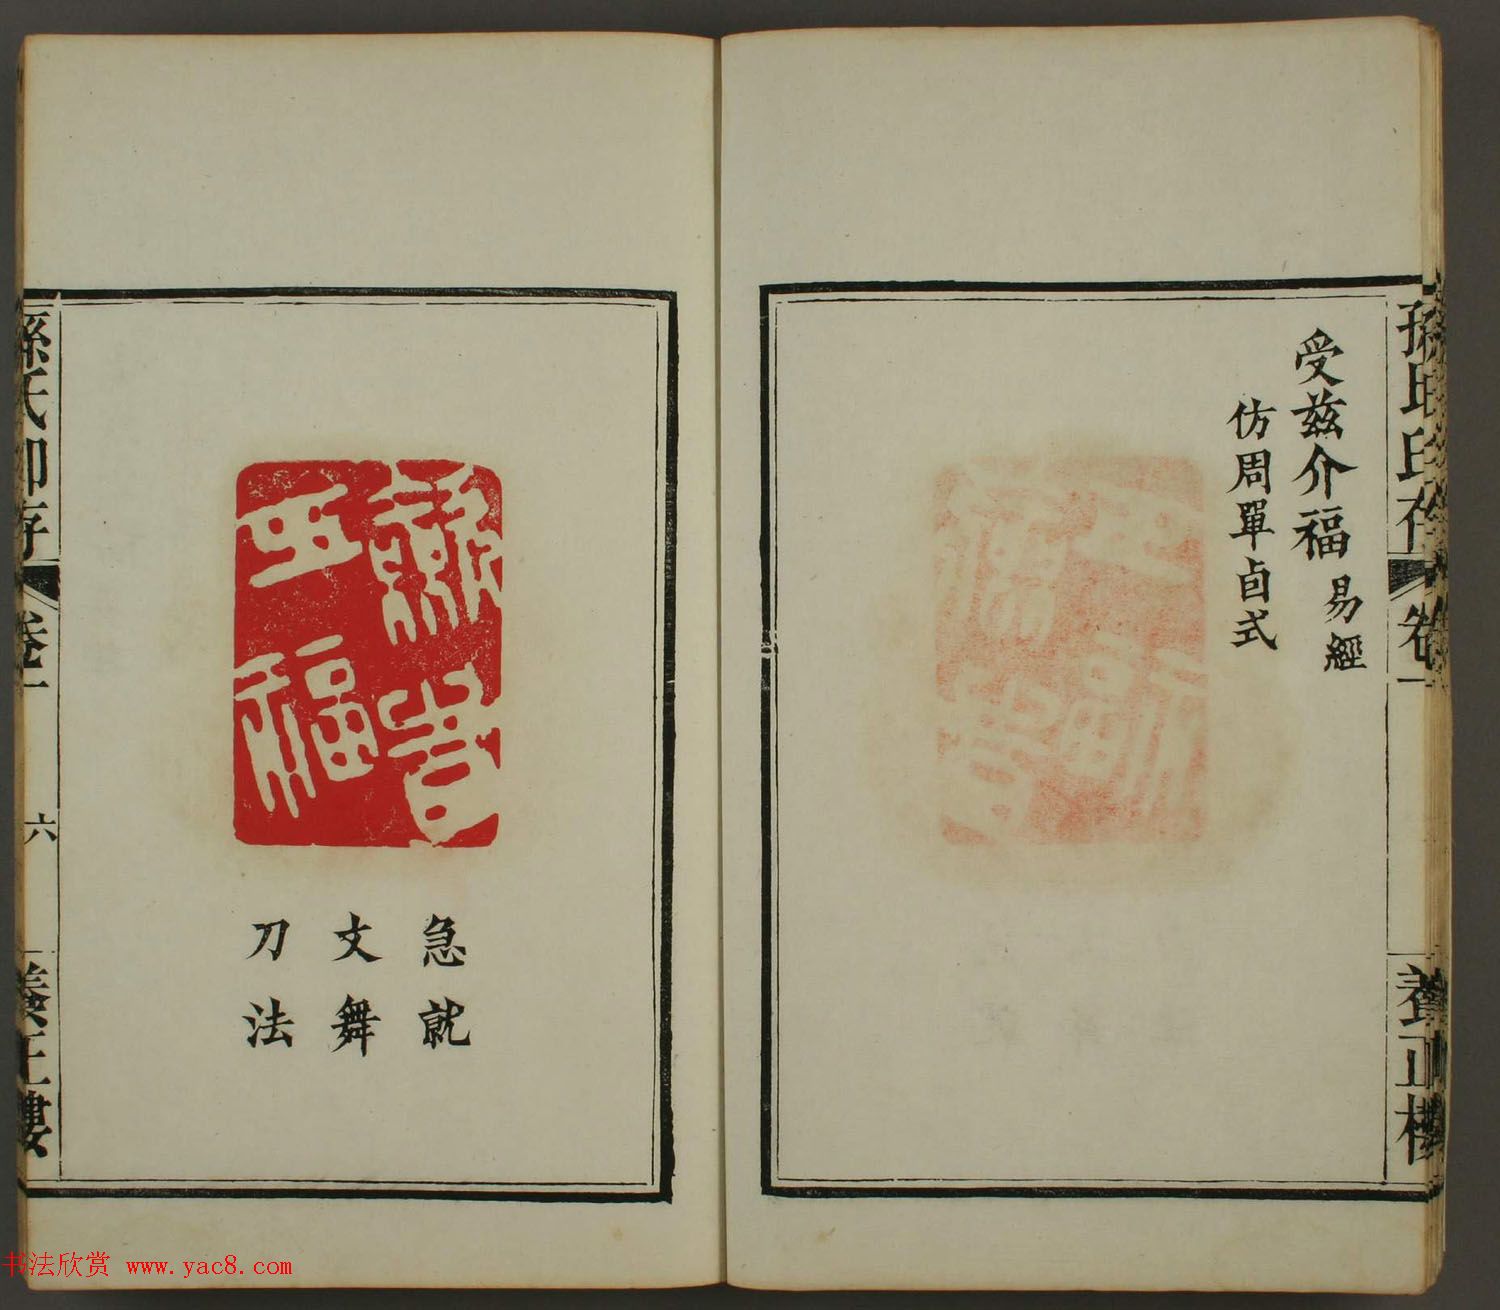 孫氏印存 卷一 養正樓
受茲介福 易經
仿周單卣式
五福
急就
文舞
刀法
孫氏印存 卷一 六 養正樓
书法欣赏 www.yac8.com